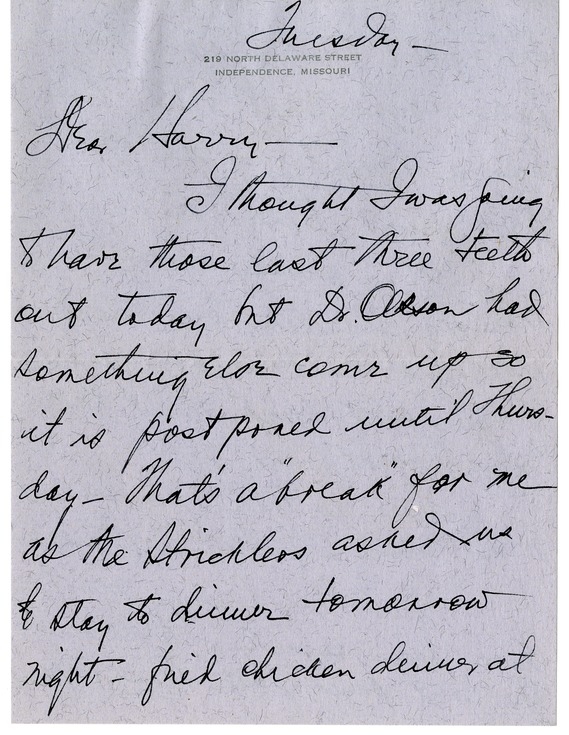 Tuesday —
219 NORTH DELAWARE STREET
INDEPENDENCE, MISSOURI
Dear Harry —
I thought I was going
to have those last three teeth
out today but Dr. Olson had
something else come up so
it is postponed until Thurs-
day — That's a "break" for me
as the Stricklers asked us
to stay to dinner tomorrow
night — fried chicken dinner at